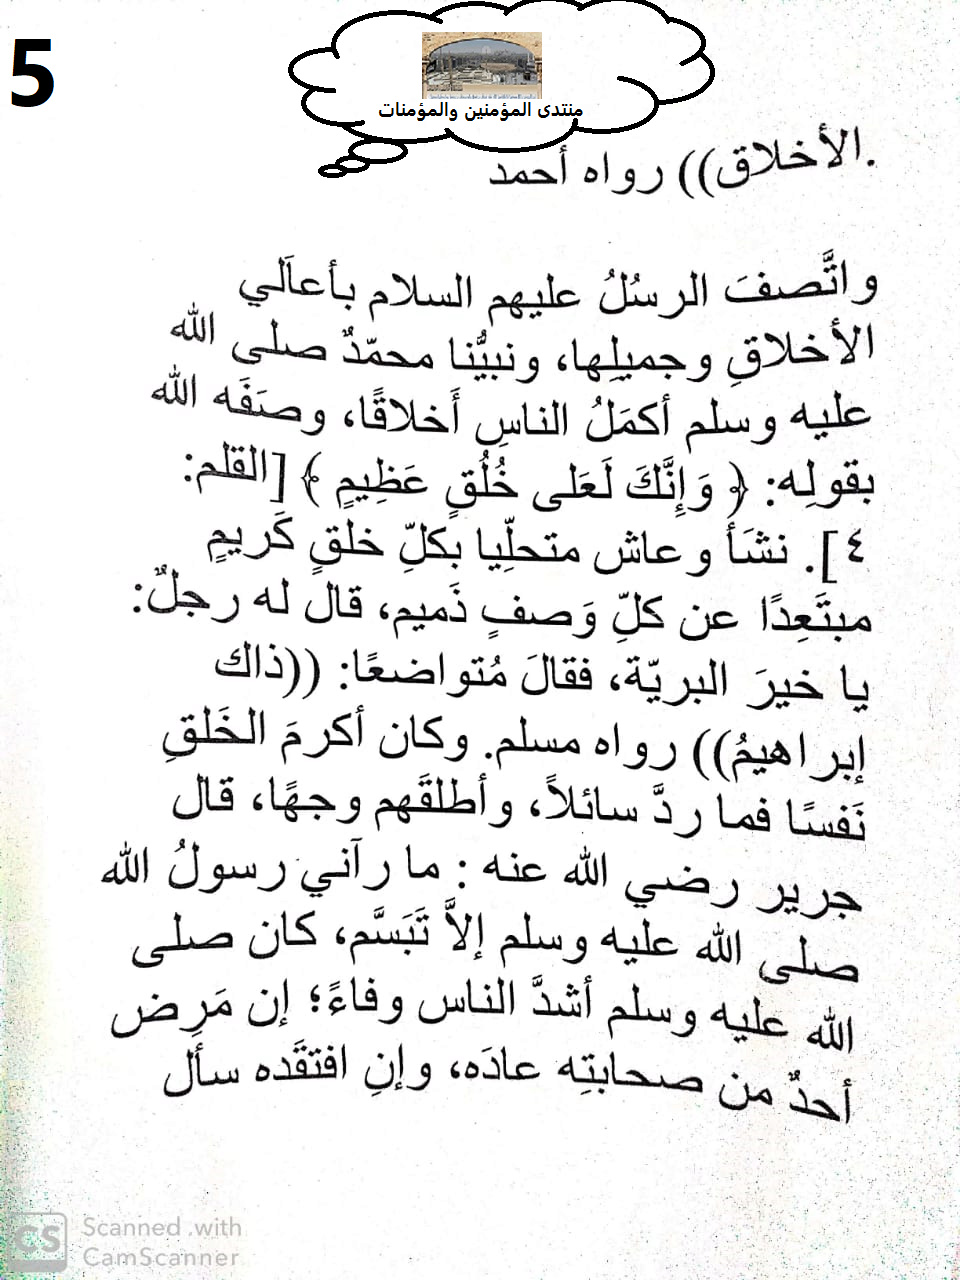 5
منتدى المؤمنين والمؤمنات
.الأخلاق)) رواه أحمد
واتَّصفَ الرسُلُ عليهم السلام بأعاَلي
الأخلاقِ وجميلِها، ونبيُّنا محمّدٌ صلى الله
عليه وسلم أكمَلُ الناسِ أَخلاقًا، وصَفَه الله
بقولِه: ﴿ وَإِنَّكَ لَعَلى خُلُقٍ عَظِيمٍ ﴾ [القلم:
٤]. نشَأ وعاش متحلِّيا بكلِّ خلقٍ كَريمٍ
مبتَعِدًا عن كلِّ وَصفٍ ذَميم، قال له رجلٌ:
يا خيرَ البريّة، فقالَ مُتواضعًا: ((ذاك
إبراهيمُ)) رواه مسلم. وكان أكرمَ الخَلقِ
نَفسًا فما ردَّ سائلاً، وأطلقَهم وجهًا، قال
جرير رضي الله عنه : ما رآني رسولُ الله
صلى الله عليه وسلم إلاَّ تَبَسَّم، كان صلى
الله عليه وسلم أشدَّ الناس وفاءً؛ إن مَرِض
أحدٌ من صحابتِه عادَه، وإنِ افتقَده سأل
CS Scanned with
CamScanner